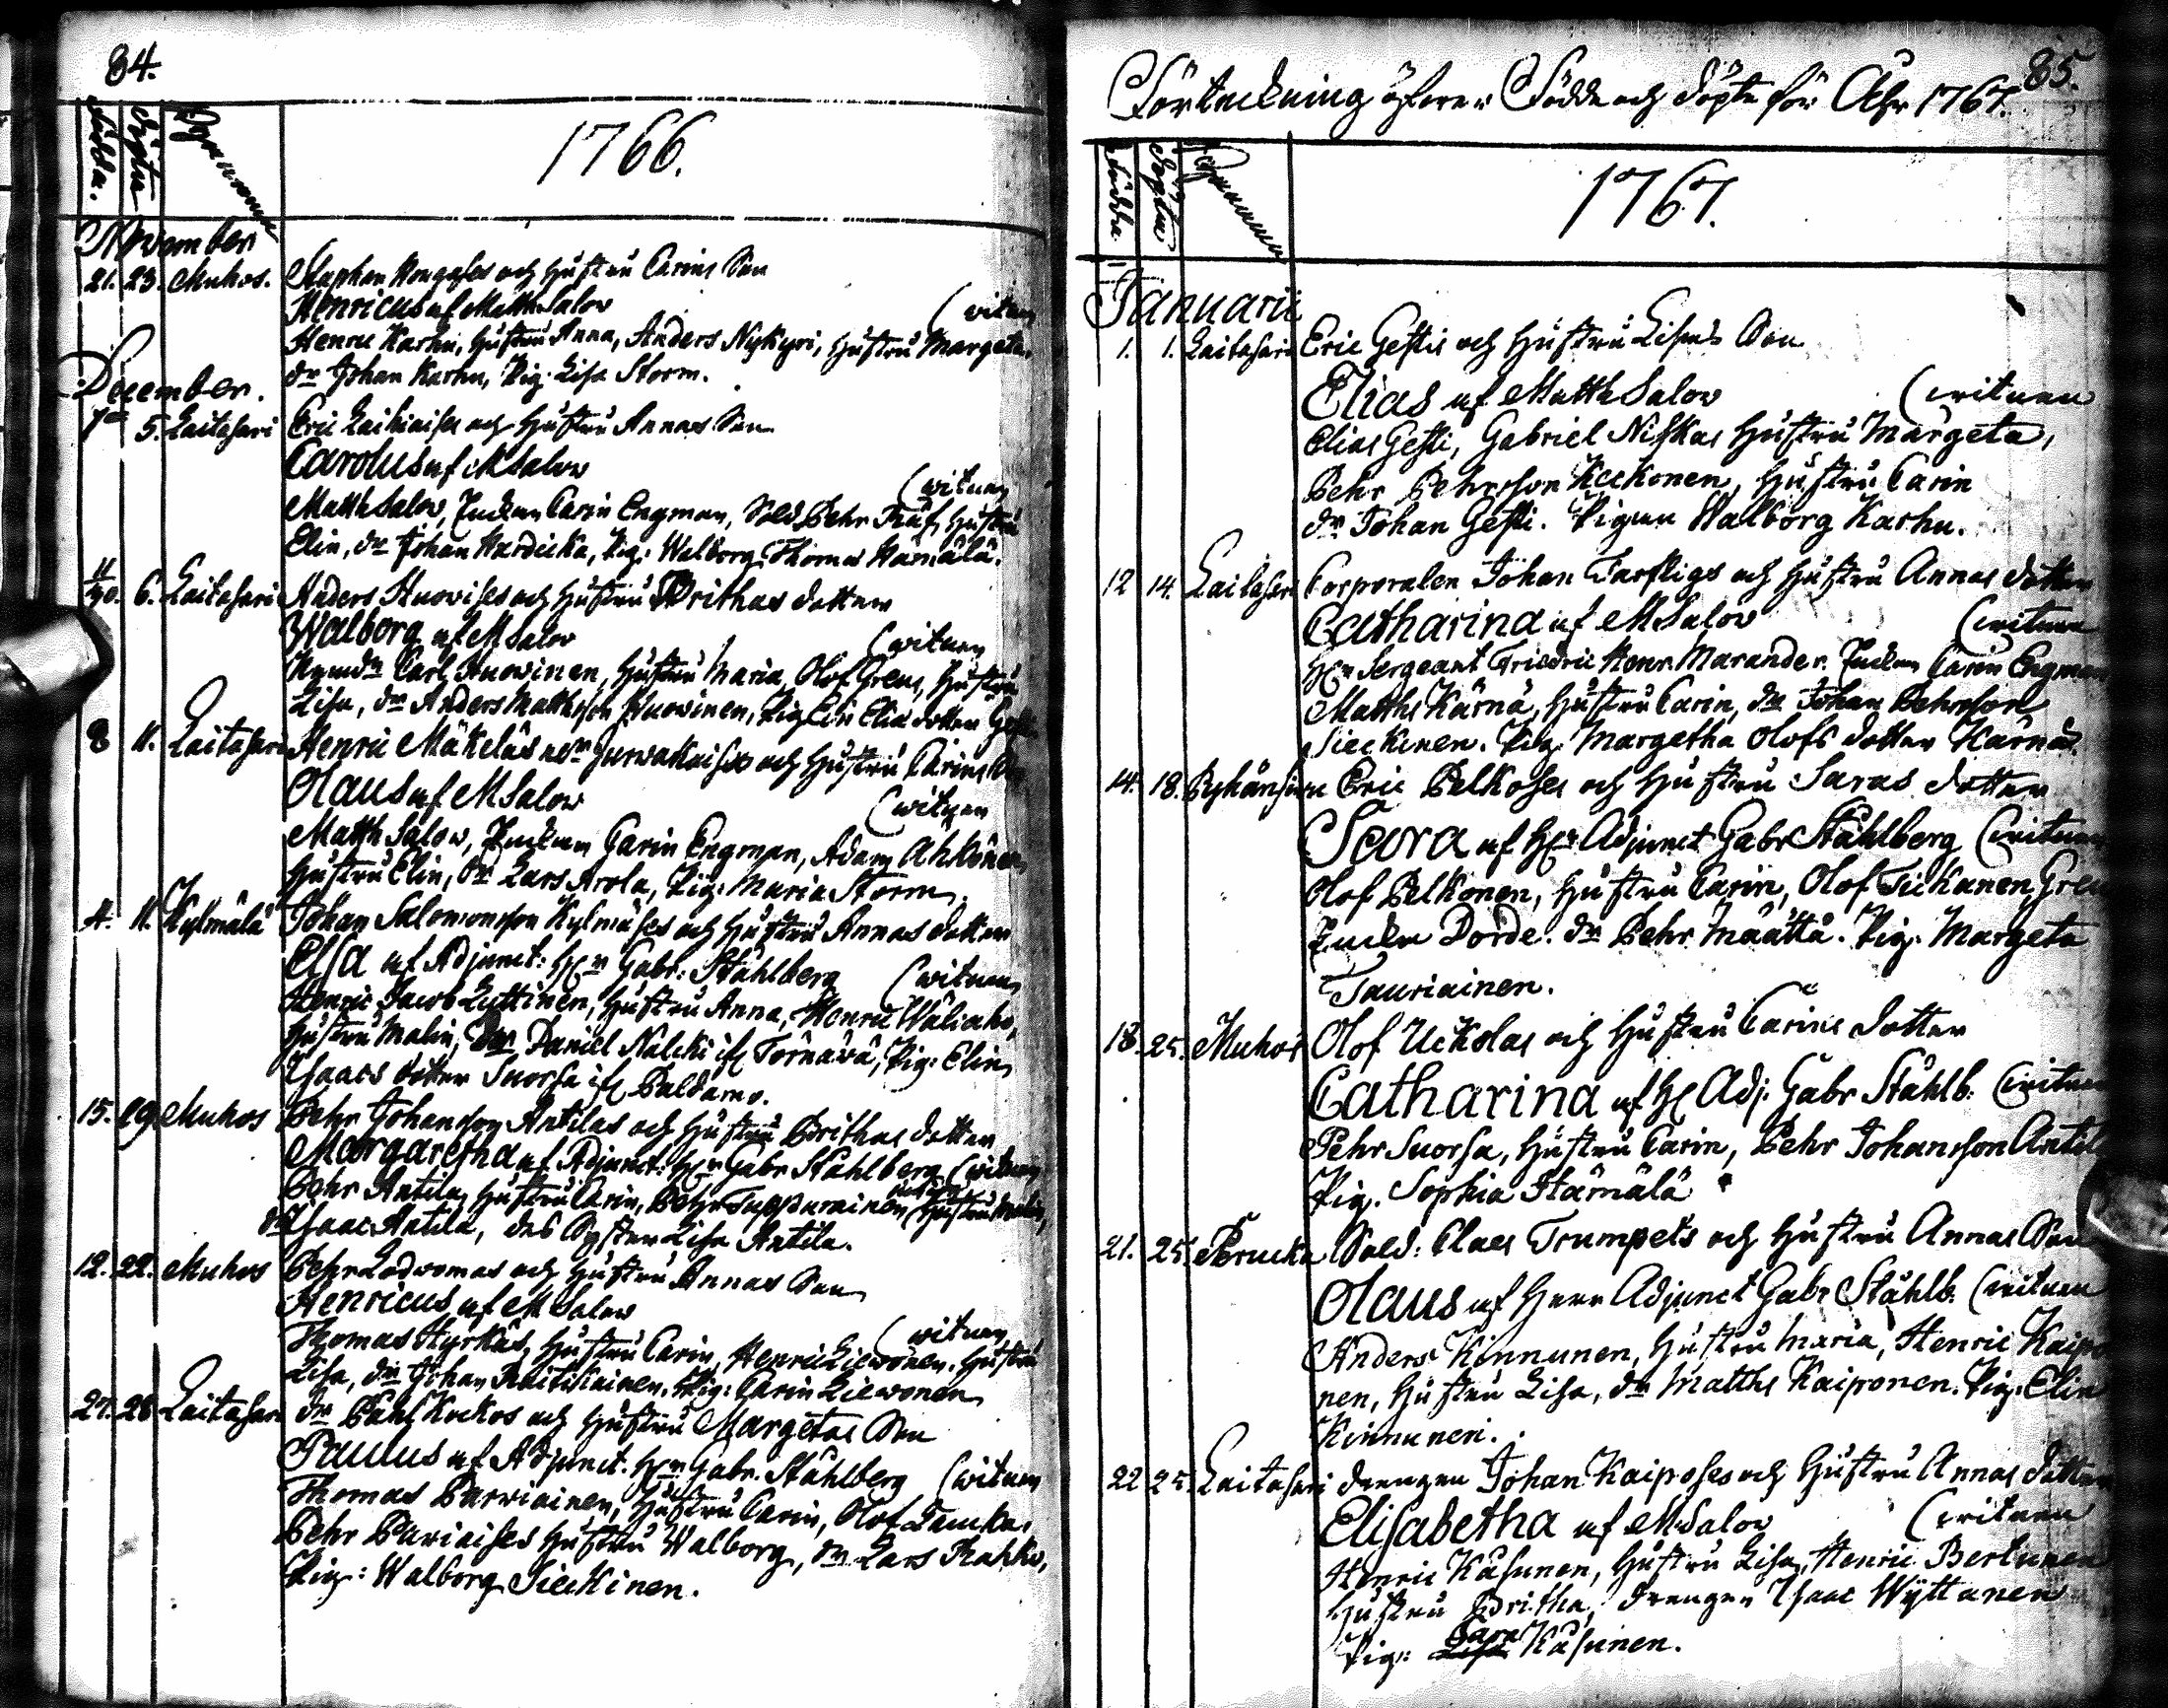 84.
Födda. Döpta Byarnamn
1766.
November
21. 23. Muhos. Staphan Mongases och Hustru Carins Son
Henricus af Matth Salov (witnen
Henric Karhu, Hustru Anna, Anders Nykyri, Hustru Margeta,
dr Johan Karhu, Pig. Lisa Storm.
December.
1 5. Laitasari Eric Laikiaises och Hustru Annas Son
Carolus af M Salov (witnen
Matth Salov, Enckan Carin Engman, Sold Pehr Räf, Hustru
Elin, dr Johan Hardicka, Pig: Walborg Thomæ Hämälä.
11/30. 6. Laitasari Anders Huovises och Hustru Brithas dotter
Walborg af M Salov (witnen
Carl Huowinen, Hustru Maria, Olof Greus, Hustru
Lisa, dr Anders Matthsson Huowinen, Pig Elin Eliæ dotter
8 11. Laitasari Henric Mäkeläs och Hustru Carins Son
Olaus af M Salov (witnen
Matth Salov, Enckan Carin Engman, Adam Ahkonen
Hustru Elin, Dr Lars Arola, Pig: Maria Storm.
4. 11. Kylmälä Johan Salomonsson Kylmäses och Hustru Annas dotter
Elsa af Adjunct: Hr Gabr: Ståhlberg (witnen
Henric Jacob Lyttinen, Hustru Anna, Henric Wäliaho,
Hustru Malin, Dr Daniel Nalcki if Törnäwä, Pig: Elin
Isaacs dotter Suorsa if Paldamo.
15. 19. Muhos Pehr Johansson Antilas och Hustru Brithas dotter
Margaretha af Adjunct: Hr Gabr Ståhlberg (witnen
Pehr Antila, Hustru Carin, Pehr Tupsurainen Hustru Malin,
dr Isaac Antila, des Syster Lisa Antila.
12. 22. Muhos Pehr Lodwomas och Hustru Annas Son
Henricus af M Salov (witnen
Thomas Hyrkäs, Hustru Carin, Henric Liewonen, Hustru
Lisa, dr Johan Raitikiainen, Pig: Carin Liewonen
27. 28 Laitasari dr Påhl Kockos och Hustru Margetas Son
Paulus af Adjunct. Hr Gabr. Ståhlberg (witnen
Thomas Parviainen, Hustru Carin, Olof Lamka,
Pehr Pariaises Hustru Walborg, dr Lars Rahko,
Pig: Walborg Sieckinen.
85.
Förteckning öfwer Födde och döpte för Åhr 1767.
Födda Döpta Byarnamn
1767.
Januarii
1. 1. Laitasari Eric Gestis och Hustru Lisas Son
Elias af Matth Salov (witnen
Elias Gesti, Gabriel Niskas Hustru Margeta,
Pehr Pehrsson Keckonen, Hustru Carin
dr Johan Gesti. Pigan Walborg Karhu.
12 14. Laitasari Corporalen Johan Farfligs och Hustru Annas dotter
Catharina af M Salov (witnen
Hr Sergeant Friedric Henr. Marander. Enckan Carin Engman
Matths Kärnä, Hustru Carin, dr Johan Pehrsson
Sieckinen. Pig: Margetha Olofs dotter Kärnä.
14. 18. Pyhänsivu Eric Pelkoses och Hustru Saras dotter
Scara af Hr Adjunct Gabr Ståhlberg (witnen
Olof Pelkonen, Hustru Carin, Olof Tickanen Greus
Enckan Dorde. dr Pehr Määttä. Pig. Margeta
Tauriainen.
18. 25. Muhos Olof Uckolas och Hustru Carins dotter
Catharina af H Adj. Gabr Ståhlb. (witnen
Pehr Suorsa, Hustru Carin, Pehr Johansson Antila
Pig. Sophia Hämälä
21. 25. Brucka Sold: Claes Trumpets och Hustru Annas Son
Olaus af Herr Adjunct Gabr Ståhlb. (witnen
Anders Kinnunen, Hustru Maria, Henric Kaipo
nen, Hustru Lisa, dr Matths Kaiponen. Pig. Elin
Kinnunen.
22 25. Laitasari drengen Johan Kaiposes och Hustru Annas dotter
Elisabetha af M Salov (witnen
Henric Kåsunen, Hustru Lisa, Henric Bertunen
Hustru Britha, drengen Isaac Wyttanen
Pig: Sara Kåsunen.